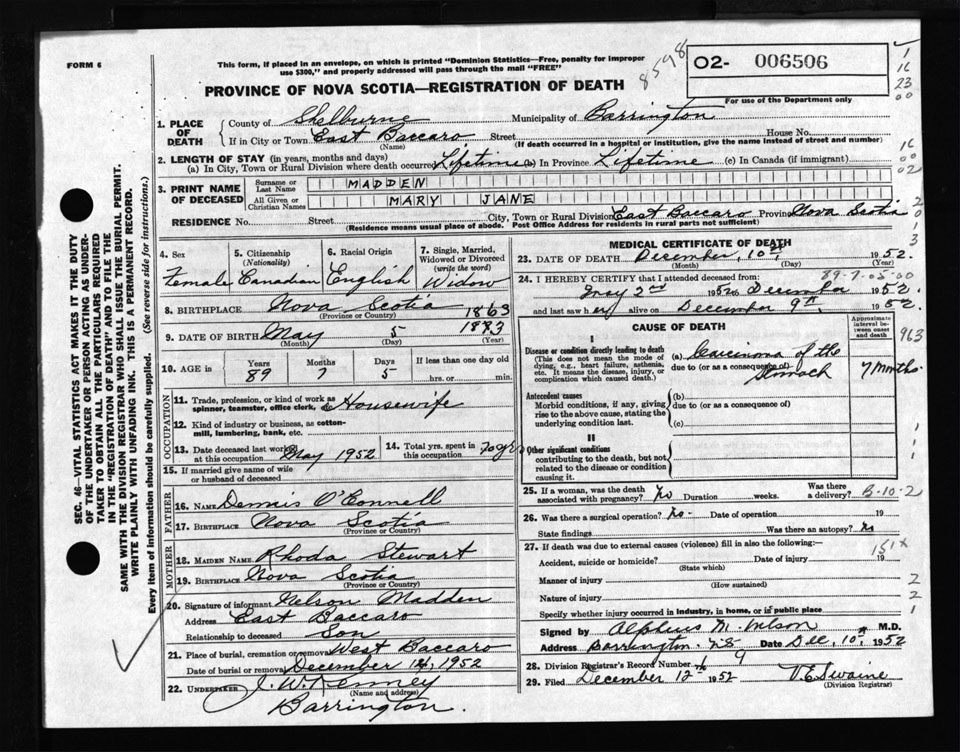 FORM 6
This form, if placed in an envelope, on which is printed "Dominion Statistics—Free, penalty for improper
use $300," and properly addressed will pass through the mail "FREE"
8598
O2- 006506
For use of Dept. only
PROVINCE OF NOVA SCOTIA—REGISTRATION OF DEATH
1. PLACE OF DEATH
County of Shelburne Municipality of Barrington
If in City or Town East Baccaro Street House No.
(Name) (If death occurred in a hospital or institution, give the name instead of street and number)
2. LENGTH OF STAY (in years, months and days)
(a) In City, Town or Rural Division where death occurred Lifetime (b) In Province Lifetime (c) In Canada (if immigrant)
3. PRINT NAME OF DECEASED
Surname or Last Name MADDEN
All Given or Christian Names MARY JANE
RESIDENCE No. Street City, Town or Rural Division East Baccaro Province Nova Scotia
(Residence means usual place of abode. Post Office Address for residents in rural parts not sufficient)
4. Sex Female
5. Citizenship (Nationality) Canadian
6. Racial Origin English
7. Single, Married, Widowed or Divorced (write the word) Widow
8. BIRTHPLACE Nova Scotia
(Province or Country)
1863
9. DATE OF BIRTH May 5 1883
(Month) (Day) (Year)
10. AGE in Years 89 Months 7 Days 5 If less than one day old
hrs. or min.
OCCUPATION
11. Trade, profession, or kind of work as spinner, teamster, office clerk, etc. Housewife
12. Kind of industry or business, as cotton-mill, lumbering, bank, etc.
13. Date deceased last worked at this occupation May 1952
14. Total yrs. spent in this occupation 70 yrs
15. If married give name of wife or husband of deceased
FATHER
16. Name Dennis O'Connell
17. Birthplace Nova Scotia
(Province or Country)
MOTHER
18. Maiden Name Rhoda Stewart
19. Birthplace Nova Scotia
(Province or Country)
20. Signature of informant Nelson Madden
Address East Baccaro
Relationship to deceased Son
21. Place of burial, cremation or removal West Baccaro
Date of burial or removal December 12, 1952
22. UNDERTAKER J. W. Kenney
(Name and address)
Barrington.
MEDICAL CERTIFICATE OF DEATH
23. DATE OF DEATH December, 10th 1952.
(Month) (Day) (Year)
89-7-05-00
24. I HEREBY CERTIFY that I attended deceased from:
May 2nd 1952 to December 1952.
and last saw her alive on December 9th 1952
CAUSE OF DEATH
Approximate interval between onset and death
I
Disease or condition directly leading to death
(This does not mean the mode of dying, e.g., heart failure, asthenia, etc. It means the disease, injury, or complication which caused death.)
(a) Carcinoma of the
due to (or as a consequence of) Stomach 7 Months.
Antecedent causes
Morbid conditions, if any, giving rise to the above cause, stating the underlying condition last.
(b)
due to (or as a consequence of)
(c)
II
Other significant conditions
contributing to the death, but not related to the disease or condition causing it.
25. If a woman, was the death associated with pregnancy? No Duration weeks. Was there a delivery?
B-10-2
26. Was there a surgical operation? No- Date of operation 19
State findings Was there an autopsy? No
27. If death was due to external causes (violence) fill in also the following:—
151x
Accident, suicide or homicide? Date of injury 19
(State which)
Manner of injury
(How sustained)
Nature of injury
Specify whether injury occurred in industry, in home, or in public place
Signed by Alpheus M. Wilson M.D.
Address Barrington. N.S. Date Dec, 10th 1952
28. Division Registrar's Record Number 9
29. Filed December 12th 1952 V.E. Swaine
(Division Registrar)
SEC. 46—VITAL STATISTICS ACT MAKES IT THE DUTY
OF THE UNDERTAKER OR PERSON ACTING AS UNDER-
TAKER TO OBTAIN ALL THE PARTICULARS REQUIRED
IN THE "REGISTRATION OF DEATH" AND TO FILE THE
SAME WITH THE DIVISION REGISTRAR WHO SHALL ISSUE THE BURIAL PERMIT.
WRITE PLAINLY WITH UNFADING INK. THIS IS A PERMANENT RECORD.
Every item of information should be carefully supplied. (See reverse side for instructions.)
1
16
23
00
16
00
02
2
0
1
3
963
1
1
1
2
2
1